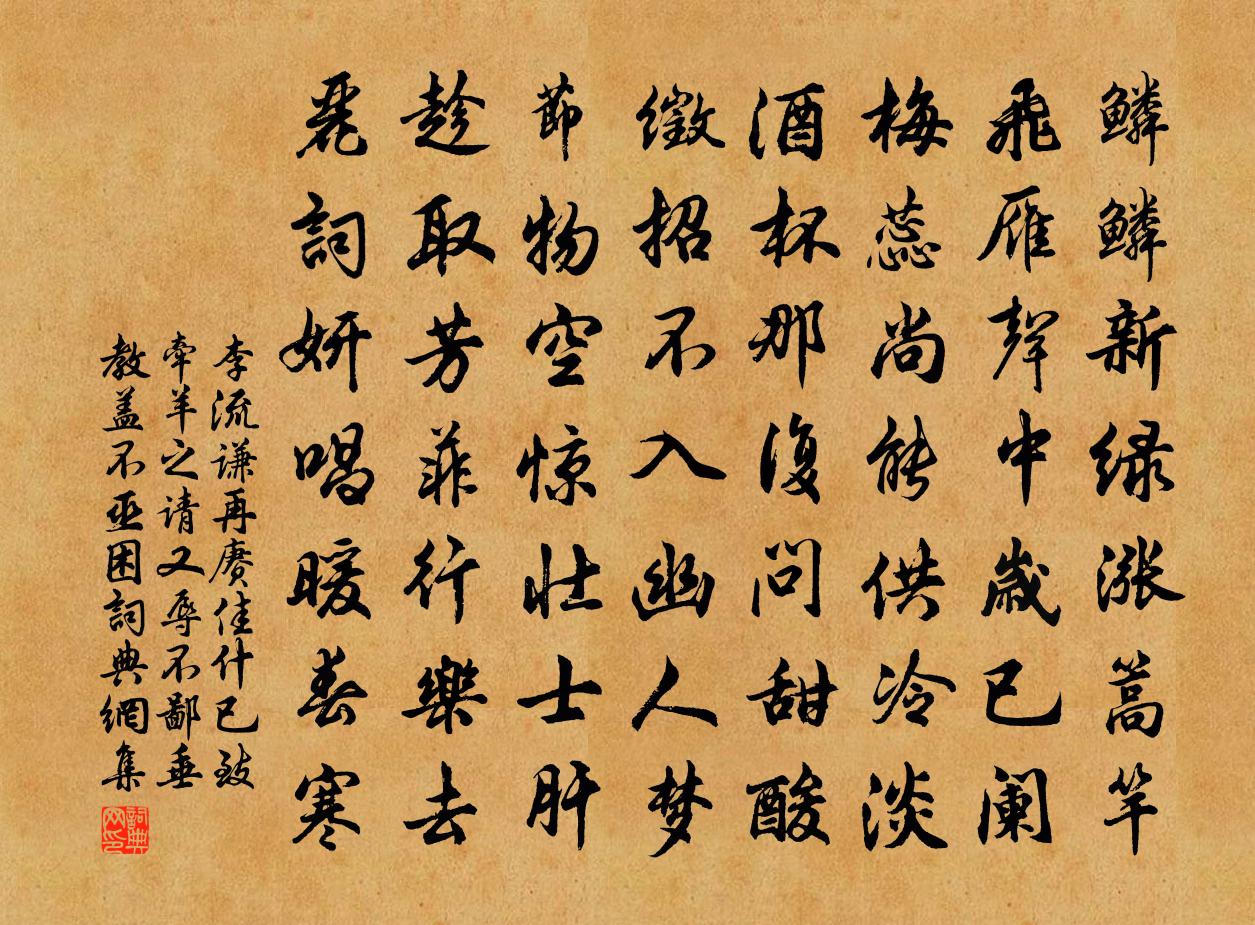 鱗鱗新緑漲篙竿
飛雁聲中歳已闌
梅蕊尚能供冷淡
酒杯那復問甜酸
徵招不入幽人梦
節物空惊壮士肝
趁取芳菲行樂去
麗詞妍唱暖春寒
李流谦再赓佳什已致
牵羊之请又辱不鄙垂
教盖不亟困詞典網集
詞典网印